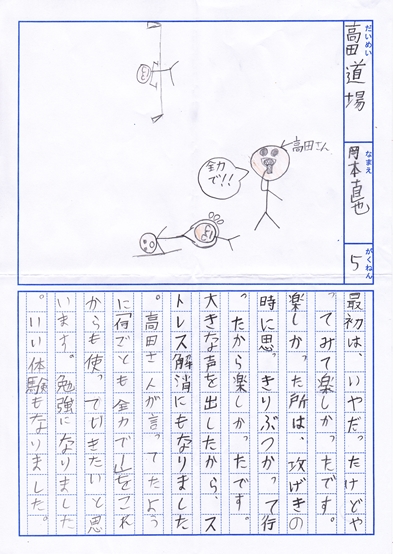 だいめい
高田道場
なまえ
岡本直也
がくねん
5
高田さん
全力
で!!
最初は、いやだったけどや
ってみて楽しかったです。
楽しかった所は、攻げきの
時に思っきりぶつかって行
ったから楽しかったです。
大きな声を出したから、ス
トレス解消にもなりました
。高田さんが言ってたよう
に「何でも全力で」をこれ
からも使っていきたいと思
います。勉強になりました
。いい体験もなりました。